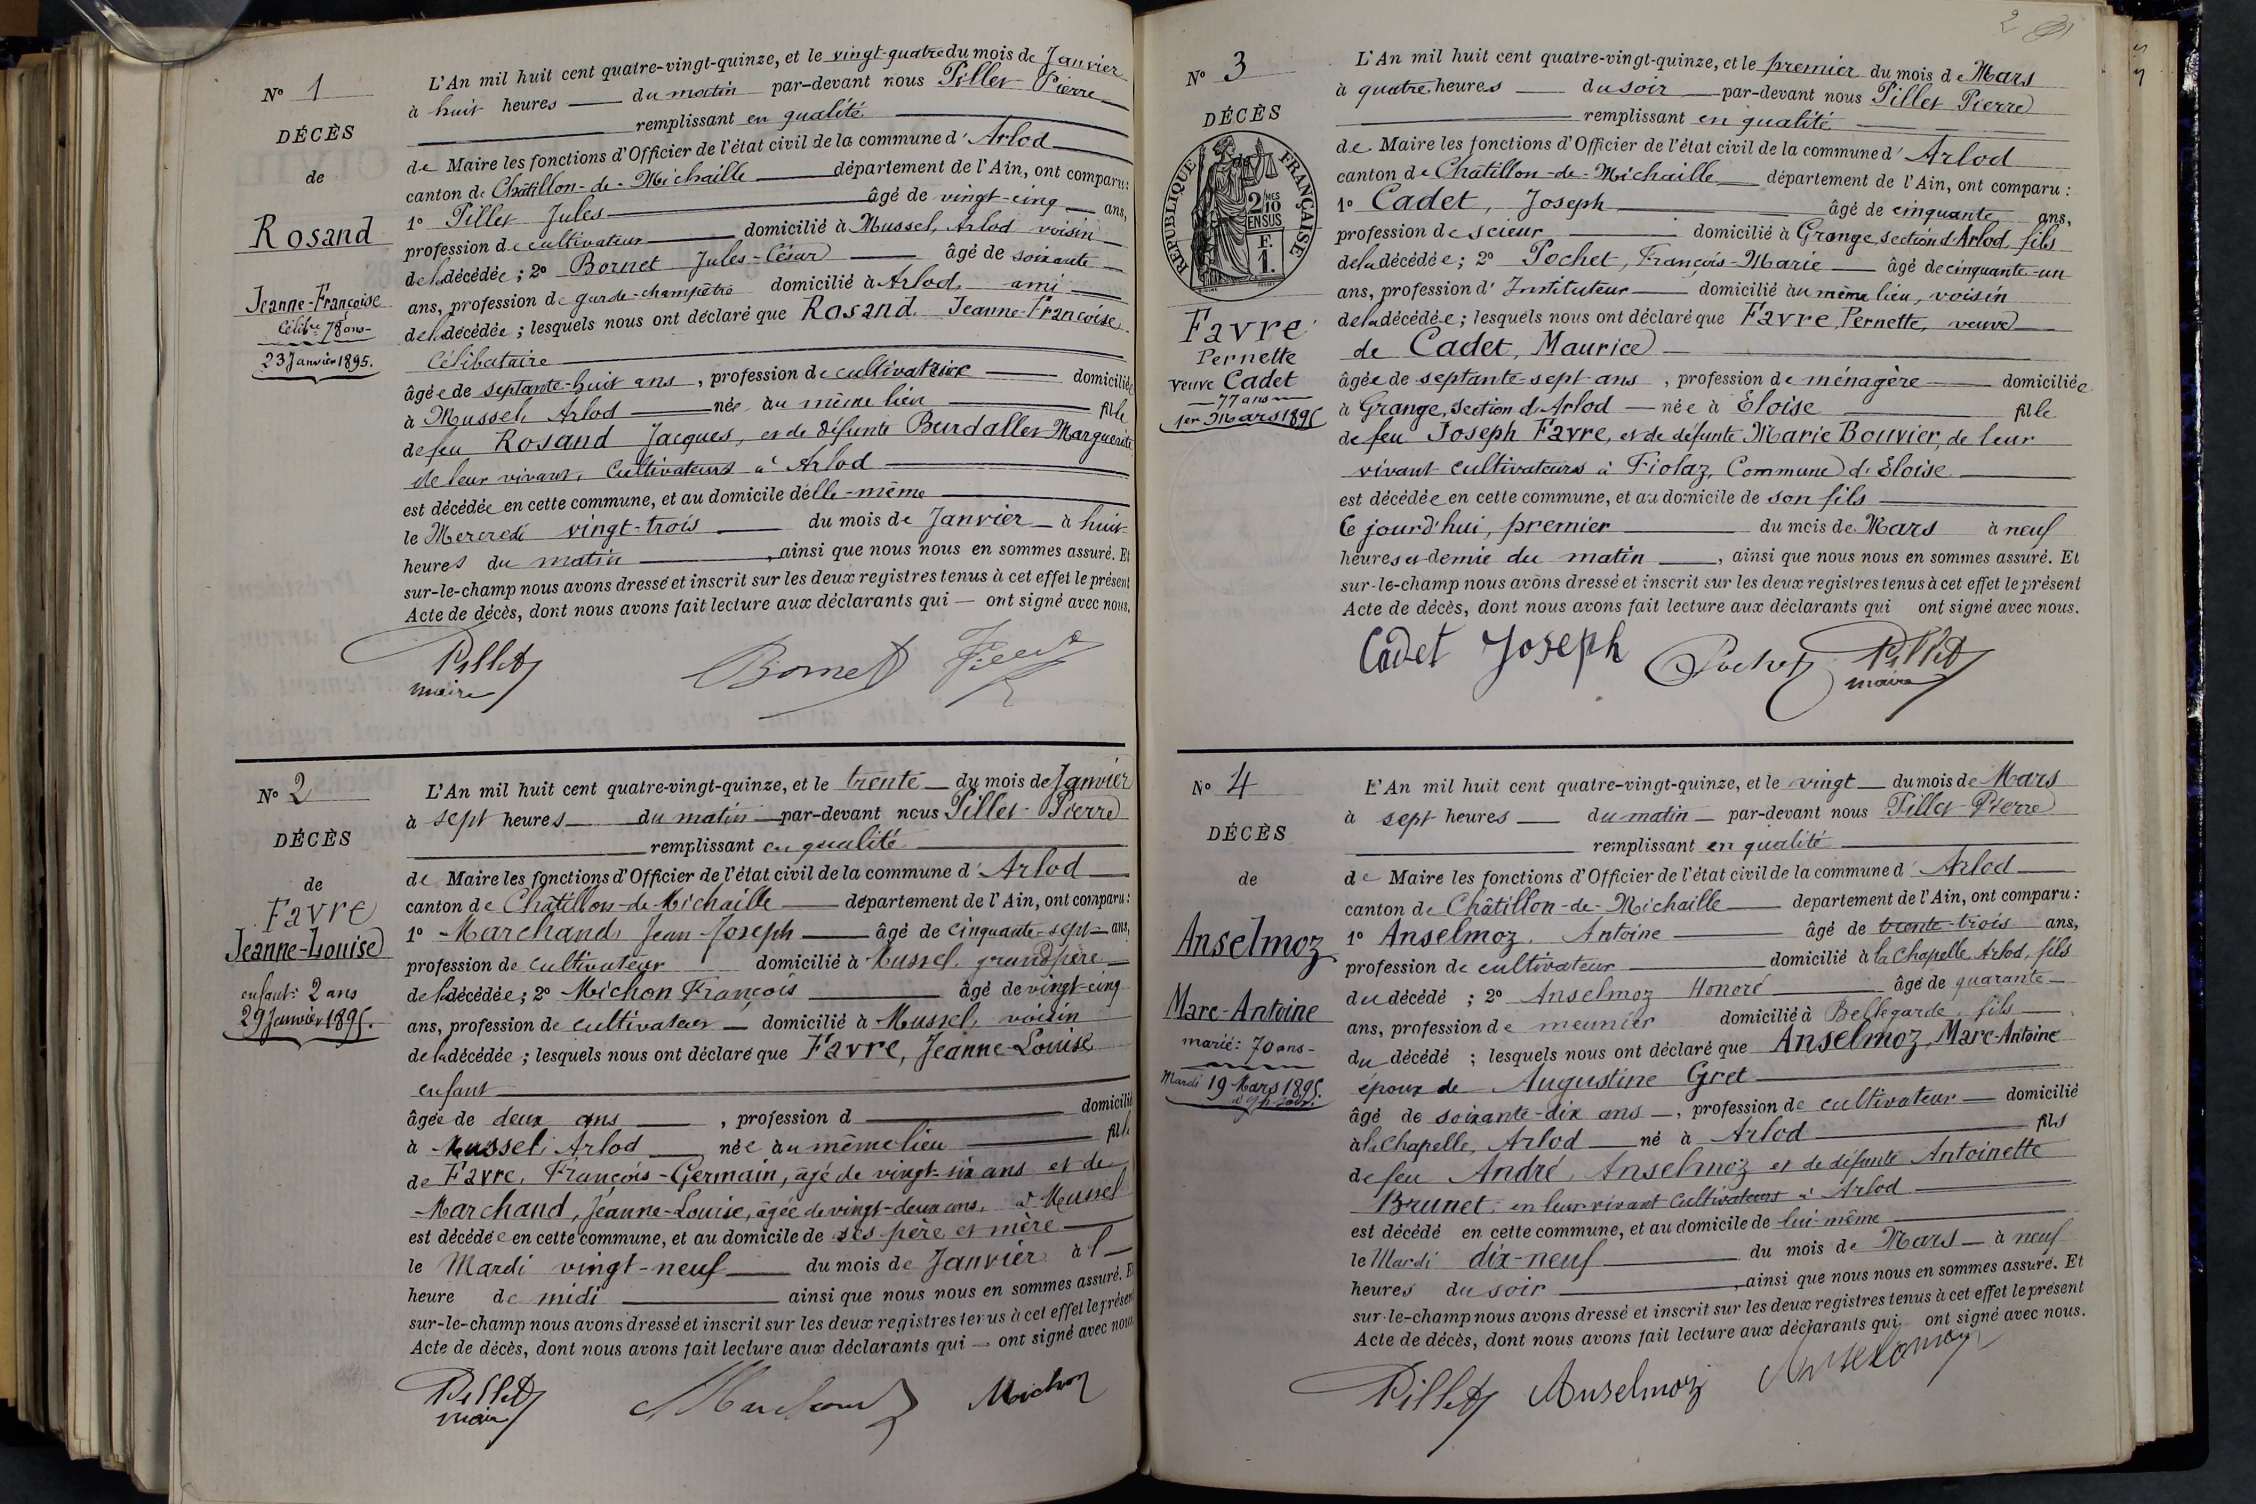 N° 1
DÉCÈS
de
Rosand
Jeanne-Françoise
Célibre 78 ans
23 Janvier 1895.
L'An mil huit cent quatre-vingt-quinze, et le vingt-quatre du mois de Janvier
à huit heures du matin par-devant nous Pillet Pierre
remplissant en qualité
de Maire les fonctions d'Officier de l'état civil de la commune d'Arlod
canton de Châtillon-de-Michaille département de l'Ain, ont comparu :
1° Pillet Jules âgé de vingt-cinq ans,
profession de cultivateur domicilié à Mussel, Arlod voisin
de la décédée ; 2° Bornet Jules-César âgé de soixante
ans, profession de garde-champêtre domicilié à Arlod, ami
de la décédée ; lesquels nous ont déclaré que Rosand, Jeanne-Françoise,
Célibataire
âgée de septante-huit ans, profession de cultivatrice domiciliée
à Mussel, Arlod née au même lieu fille
de feu Rosand Jacques, et de défunte Burdallet Marguerite
de leur vivant, Cultivateurs à Arlod
est décédée en cette commune, et au domicile d'elle-même
le Mercredi vingt-trois du mois de Janvier à huit
heures du matin, ainsi que nous nous en sommes assuré. Et
sur-le-champ nous avons dressé et inscrit sur les deux registres tenus à cet effet le présent
Acte de décès, dont nous avons fait lecture aux déclarants qui — ont signé avec nous.
Pillet Bornet
maire
N° 2
DÉCÈS
de
Favre
Jeanne-Louise
enfant : 2 ans
29 Janvier 1895.
L'An mil huit cent quatre-vingt-quinze, et le trente du mois de Janvier
à sept heures du matin par-devant nous Pillet Pierre
remplissant en qualité
de Maire les fonctions d'Officier de l'état civil de la commune d'Arlod
canton de Châtillon-de-Michaille département de l'Ain, ont comparu :
1° Marchand, Jean-Joseph âgé de cinquante-sept ans,
profession de cultivateur domicilié à Mussel, grand-père
de la décédée ; 2° Michon François âgé de vingt-cinq
ans, profession de cultivateur domicilié à Mussel, voisin
de la décédée ; lesquels nous ont déclaré que Favre, Jeanne-Louise
enfant
âgée de deux ans, profession d domicilié
à Mussel, Arlod née au même lieu fille
de Favre, François-Germain, âgé de vingt-six ans et de
Marchand, Jeanne-Louise, âgée de vingt-deux ans, à Mussel
est décédée en cette commune, et au domicile de ses père et mère
le Mardi vingt-neuf du mois de Janvier à 1
heure de midi ainsi que nous nous en sommes assuré. Et
sur-le-champ nous avons dressé et inscrit sur les deux registres tenus à cet effet le présent
Acte de décès, dont nous avons fait lecture aux déclarants qui — ont signé avec nous.
Pillet Marchand Michon
maire
2
N° 3
DÉCÈS
RÉPUBLIQUE FRANÇAISE
2/10 MES
EN SUS
F.
1.
Favre
Pernette
veuve Cadet
77 ans
1er Mars 1895
L'An mil huit cent quatre-vingt-quinze, et le premier du mois de Mars
à quatre heures du soir par-devant nous Pillet Pierre
remplissant en qualité
de Maire les fonctions d'Officier de l'état civil de la commune d'Arlod
canton de Châtillon-de-Michaille département de l'Ain, ont comparu :
1° Cadet, Joseph âgé de cinquante ans,
profession de scieur domicilié à Grange, section d'Arlod, fils
de la décédée ; 2° Pochet, François-Marie âgé de cinquante-un
ans, profession d'Instituteur domicilié au même lieu, voisin
de la décédée ; lesquels nous ont déclaré que Favre, Pernette, veuve
de Cadet, Maurice
âgée de septante-sept ans, profession de ménagère domiciliée
à Grange, section d'Arlod née à Eloise fille
de feu Joseph Favre, et de défunte Marie Bouvier, de leur
vivant cultivateurs à Fiolaz, Commune d'Eloise
est décédée en cette commune, et au domicile de son fils
Ce jourd'hui, premier du mois de Mars à neuf
heures et demie du matin, ainsi que nous nous en sommes assuré. Et
sur-le-champ nous avons dressé et inscrit sur les deux registres tenus à cet effet le présent
Acte de décès, dont nous avons fait lecture aux déclarants qui ont signé avec nous.
Cadet Joseph Pochet Pillet
maire
N° 4
DÉCÈS
de
Anselmoz
Marc-Antoine
marié : 70 ans
Mardi 19 Mars 1895
à 9h soir.
L'An mil huit cent quatre-vingt-quinze, et le vingt du mois de Mars
à sept heures du matin par-devant nous Pillet Pierre
remplissant en qualité
de Maire les fonctions d'Officier de l'état civil de la commune d'Arlod
canton de Châtillon-de-Michaille département de l'Ain, ont comparu :
1° Anselmoz, Antoine âgé de trente-trois ans,
profession de cultivateur domicilié à la Chapelle, Arlod, fils
du décédé ; 2° Anselmoz Honoré âgé de quarante
ans, profession de meunier domicilié à Bellegarde, fils
du décédé ; lesquels nous ont déclaré que Anselmoz, Marc-Antoine
époux de Augustine Gret
âgé de soixante-dix ans, profession de cultivateur domicilié
à la Chapelle, Arlod né à Arlod fils
de feu André, Anselmoz et de défunte Antoinette
Brunet, en leur vivant Cultivateurs à Arlod
est décédé en cette commune, et au domicile de lui-même
le Mardi dix-neuf du mois de Mars à neuf
heures du soir, ainsi que nous nous en sommes assuré. Et
sur-le-champ nous avons dressé et inscrit sur les deux registres tenus à cet effet le présent
Acte de décès, dont nous avons fait lecture aux déclarants qui ont signé avec nous.
Pillet Anselmoz Anselmoz